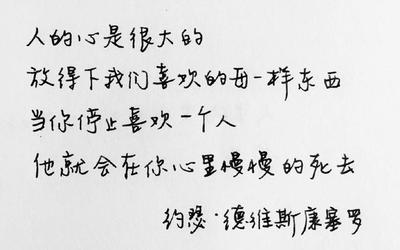 人的心是很大的
放得下我们喜欢的每一样东西
当你停止喜欢一个人
他就会在你心里慢慢的死去
约瑟·德维斯康塞罗